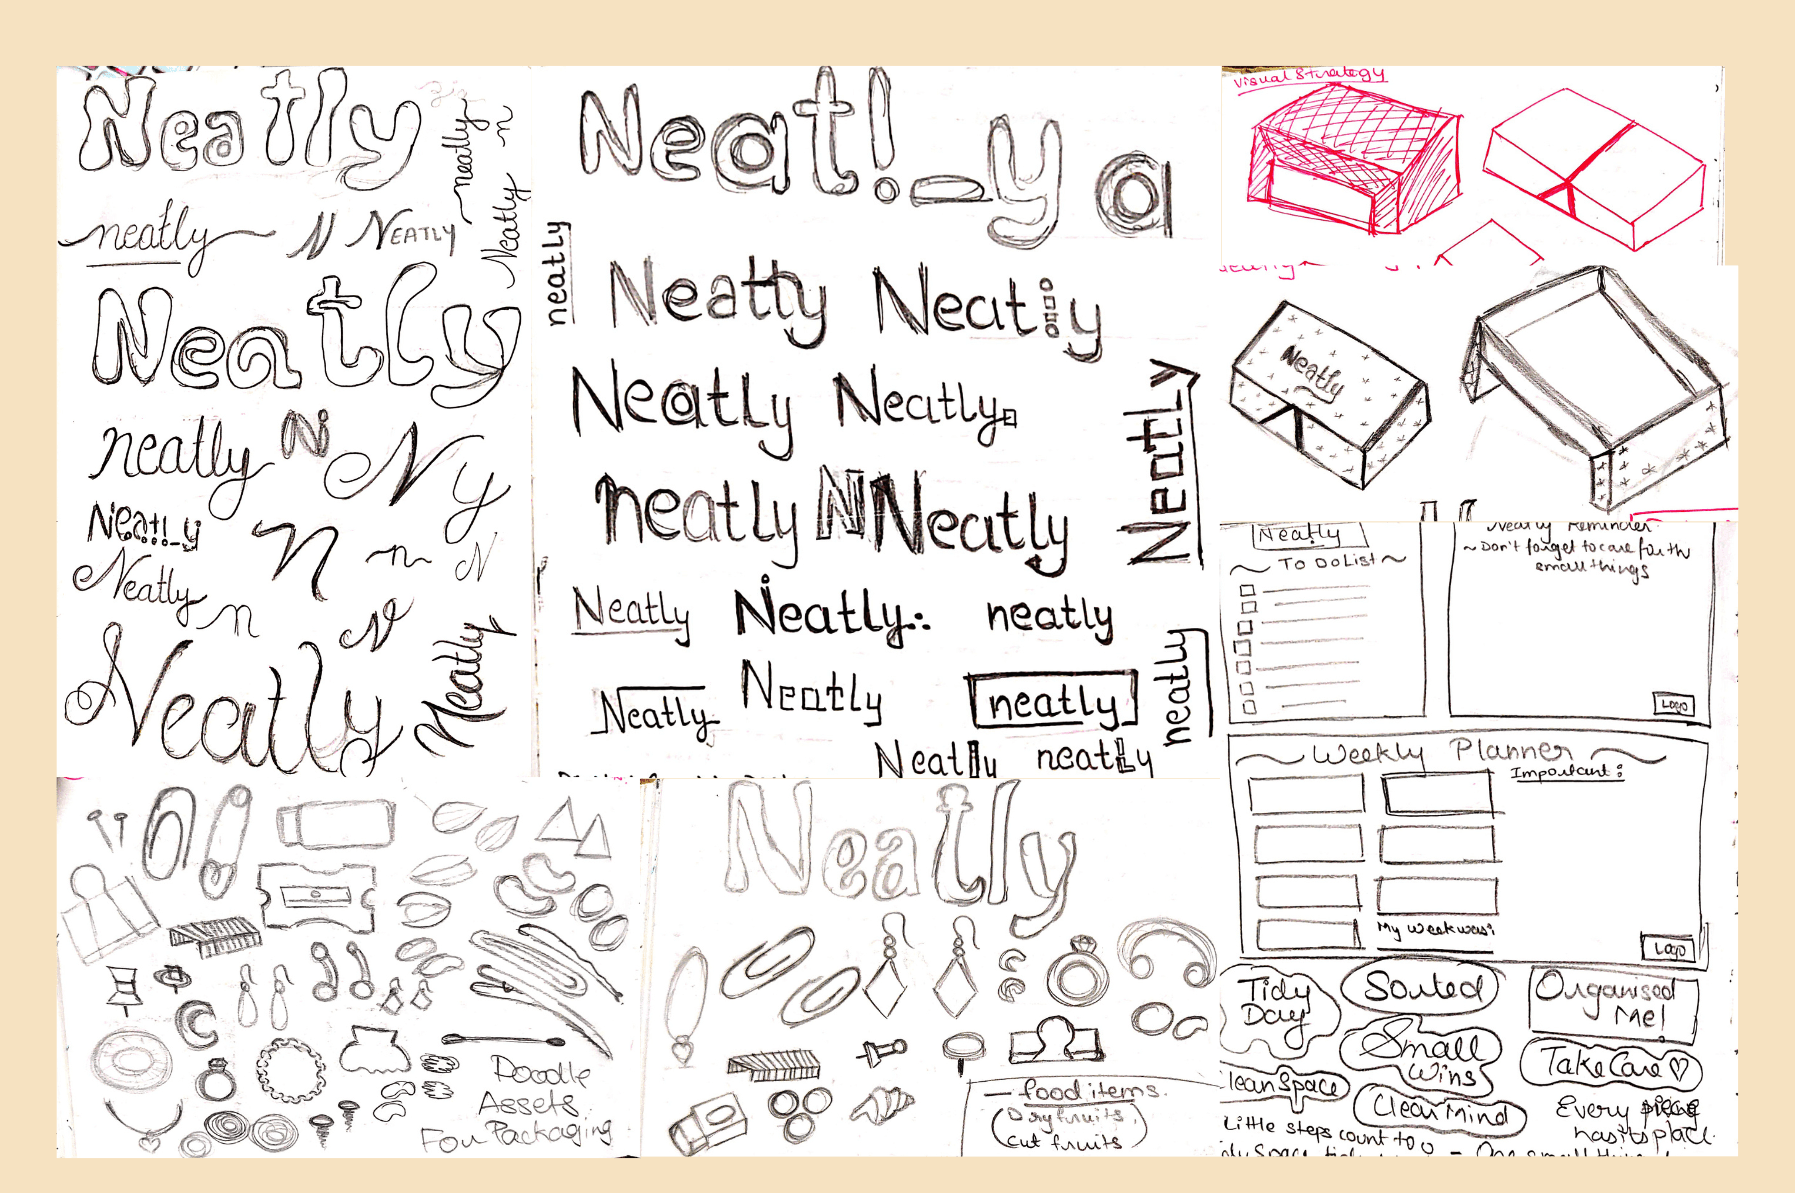 Neatly
neatly
n
neatly
N
NEATLY
Neatly
Neatly
neatly
Ni
N
y
Neat!!_y
n
n
N
Neatly
n
N
Neatly
Neatly
Neat!_y
a
neatly
Neatly
Neat
y
Neatly
Neatly
Neatly
neatly
N
Neatly
Neatly
Neatly
neatly
neatly
Neatly
Neatly
neatly
Neatly
neatly
Visual Strategy
Neatly
Neatly
~ To Do List ~
Neatly Reminder
~ Don't forget to care for the
small things
Logo
Weekly Planner
Important :
My week was:
Logo
Tidy
Day
Sorted
Organised
Me!
Small
Wins
Take Care ♡
Clean Space
Clean Mind
Every piece
has its place.
Little steps count too
Doodle
Assets
For Packaging
Neatly
– food items.
(Dryfruits,
cut fruits)